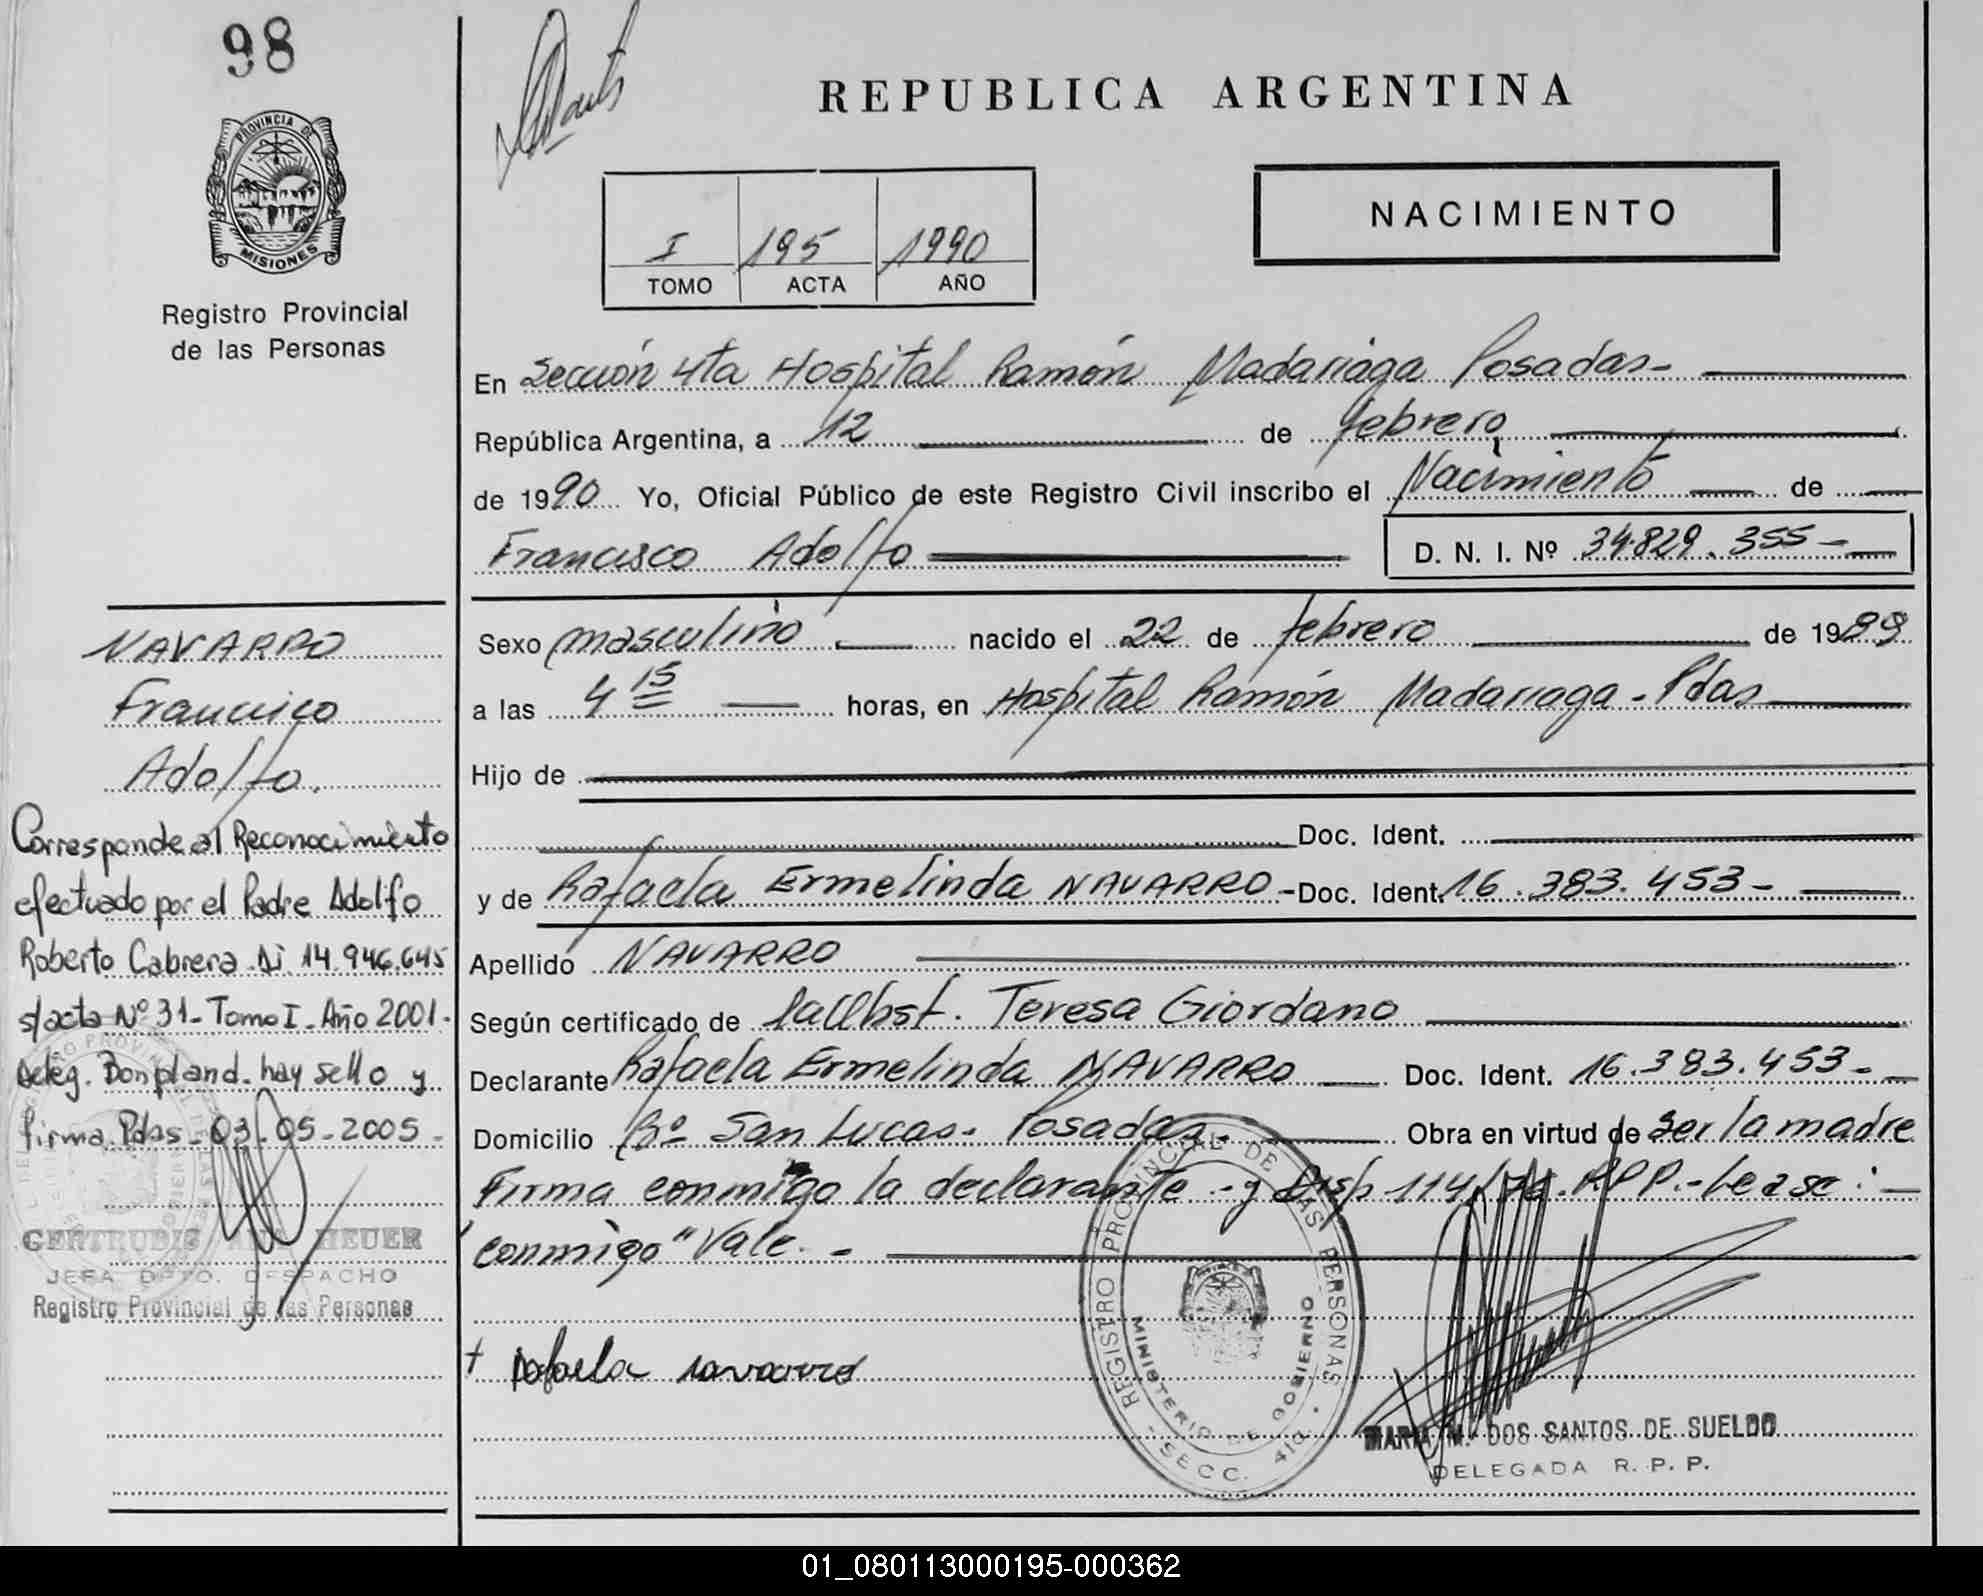 98
PROVINCIA DE
MISIONES
Registro Provincial
de las Personas
REPUBLICA ARGENTINA
NACIMIENTO
I 195 1990
TOMO ACTA AÑO
En Sección 4ta Hospital Ramón Madariaga Posadas-
República Argentina, a 12 de febrero
de 1990 Yo, Oficial Público de este Registro Civil inscribo el Nacimiento de
Francisco Adolfo D. N. I. Nº 34.829.355-
Sexo masculino nacido el 22 de febrero de 1989
a las 4 15 horas, en Hospital Ramón Madariaga - Pdas
Hijo de
Doc. Ident.
y de Rafaela Ermelinda NAVARRO - Doc. Ident. 16.383.453-
Apellido NAVARRO
Según certificado de Teresa Giordano
Declarante Rafaela Ermelinda NAVARRO Doc. Ident. 16.383.453-
Domicilio Bº San Lucas. Posadas. Obra en virtud de ser la madre
Firma conmigo la declarante - y Disp 114/ R.P.P.- Lease:
"conmigo" Vale. -
+ Rafaela navarro
REGISTRO PROVINCIAL DE LAS PERSONAS
MINISTERIO DE GOBIERNO
SECC. 4ta.
MARIA M. DOS SANTOS DE SUELDO
DELEGADA R. P. P.
NAVARRO
Francisco
Adolfo.
Corresponde al Reconocimiento
efectuado por el Padre Adolfo
Roberto Cabrera. Di 14.946.645
s/acta Nº 31- Tomo I - Año 2001.
Deleg. Bonpland. hay sello y
firma. Pdas - 03.05-2005-
GERTRUDIS HEUER
JEFA DPTO. DESPACHO
Registro Provincial de las Personas
01_080113000195-000362